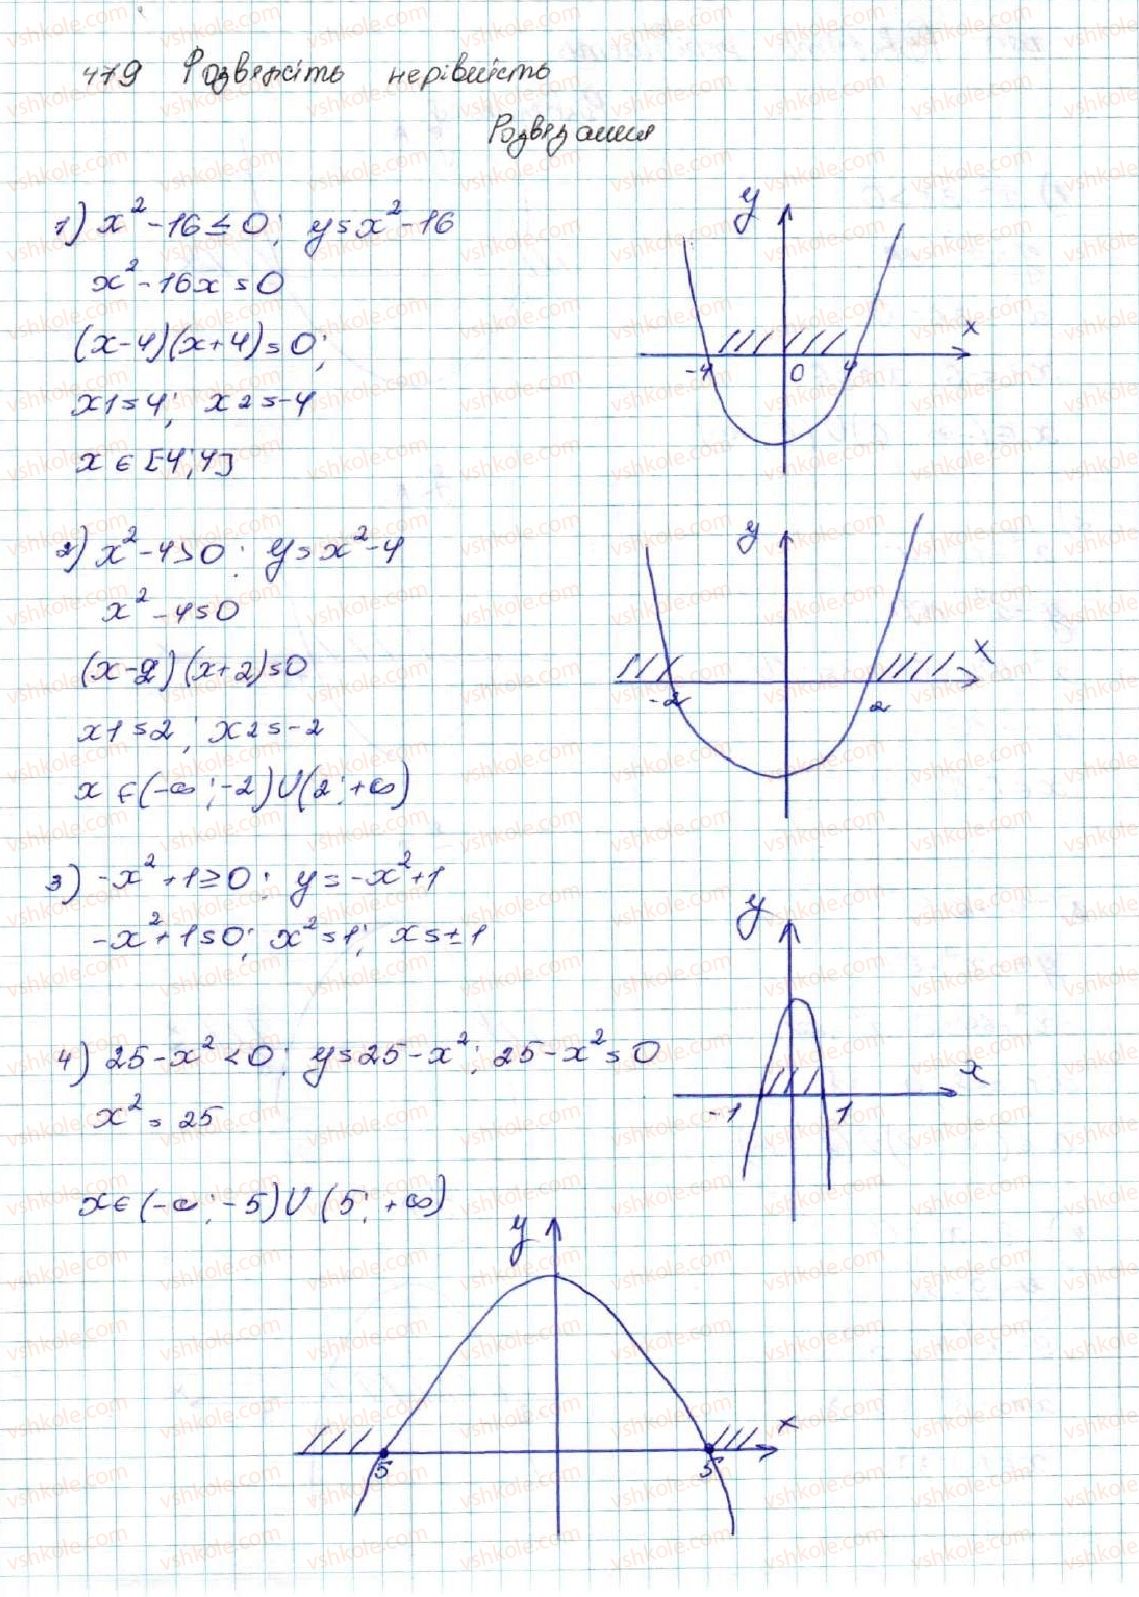 479 Розвяжіть нерівність
Розвязання
1) x² - 16 ≤ 0; y = x² - 16
x² - 16x = 0
(x-4)(x+4) = 0;
x1 = 4; x2 = -4
x ∈ [-4; 4]
y
x
-4 0 4
2) x² - 4 > 0; y = x² - 4
x² - 4 = 0
(x-2)(x+2) = 0
x1 = 2; x2 = -2
x ∈ (-∞; -2) U (2; +∞)
y
x
-2 2
3) -x² + 1 ≥ 0; y = -x² + 1
-x² + 1 = 0; x² = 1; x = ±1
y
x
-1 1
4) 25 - x² < 0; y = 25 - x²; 25 - x² = 0
x² = 25
x ∈ (-∞; -5) U (5; +∞)
y
x
5 5
vshkole.com